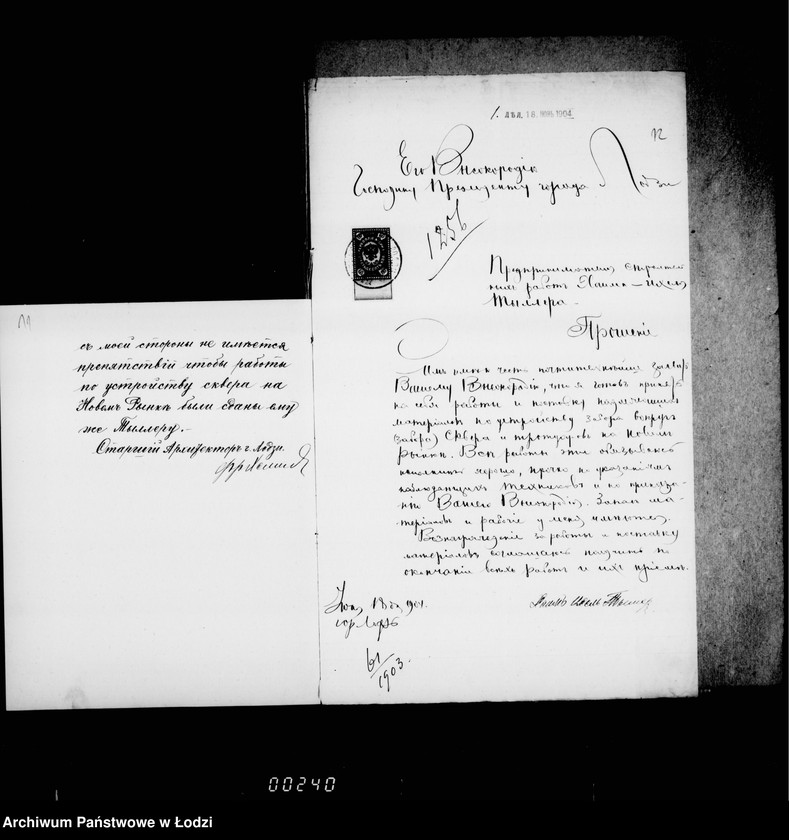 11
съ моей стороны не имѣется
препятствій чтобы работы
по устройству сквера на
Новомъ Рынкѣ были сданы ему
же Тыллеру.-
Старшій Архитекторъ г. Лодзи
1. ДѢЛ. 18 1904
12
Его Высокородію
Господину Президенту города Лодзи
1256
Предпринимателя строитель
ныхъ работъ Хаима-Ихель
Тыллера.
Прошеніе
Имѣю честь почтительнѣйше
Вашему Высокородію, что я готовъ принять
на себя работы и поставку
матеріаловъ по устройству забора вокругъ
сквера и тротуаровъ на Новомъ
Рынкѣ. Всѣ работы эти обязываюсь
исполнить хорошо, прочно по указаніямъ
наблюдающихъ техниковъ и по приказа-
нію Вашего Высокородія. Запасъ ма-
теріаловъ и рабочіе у меня имѣются.
Вознагражденіе за работы и поставку
матеріаловъ получить по
окончаніи всѣхъ работъ и ихъ пріемѣ.
18 1904.
гор. Лодзь
Хаимъ Ихель Тыллер
61
1903.
00240
Archiwum Państwowe w Łodzi